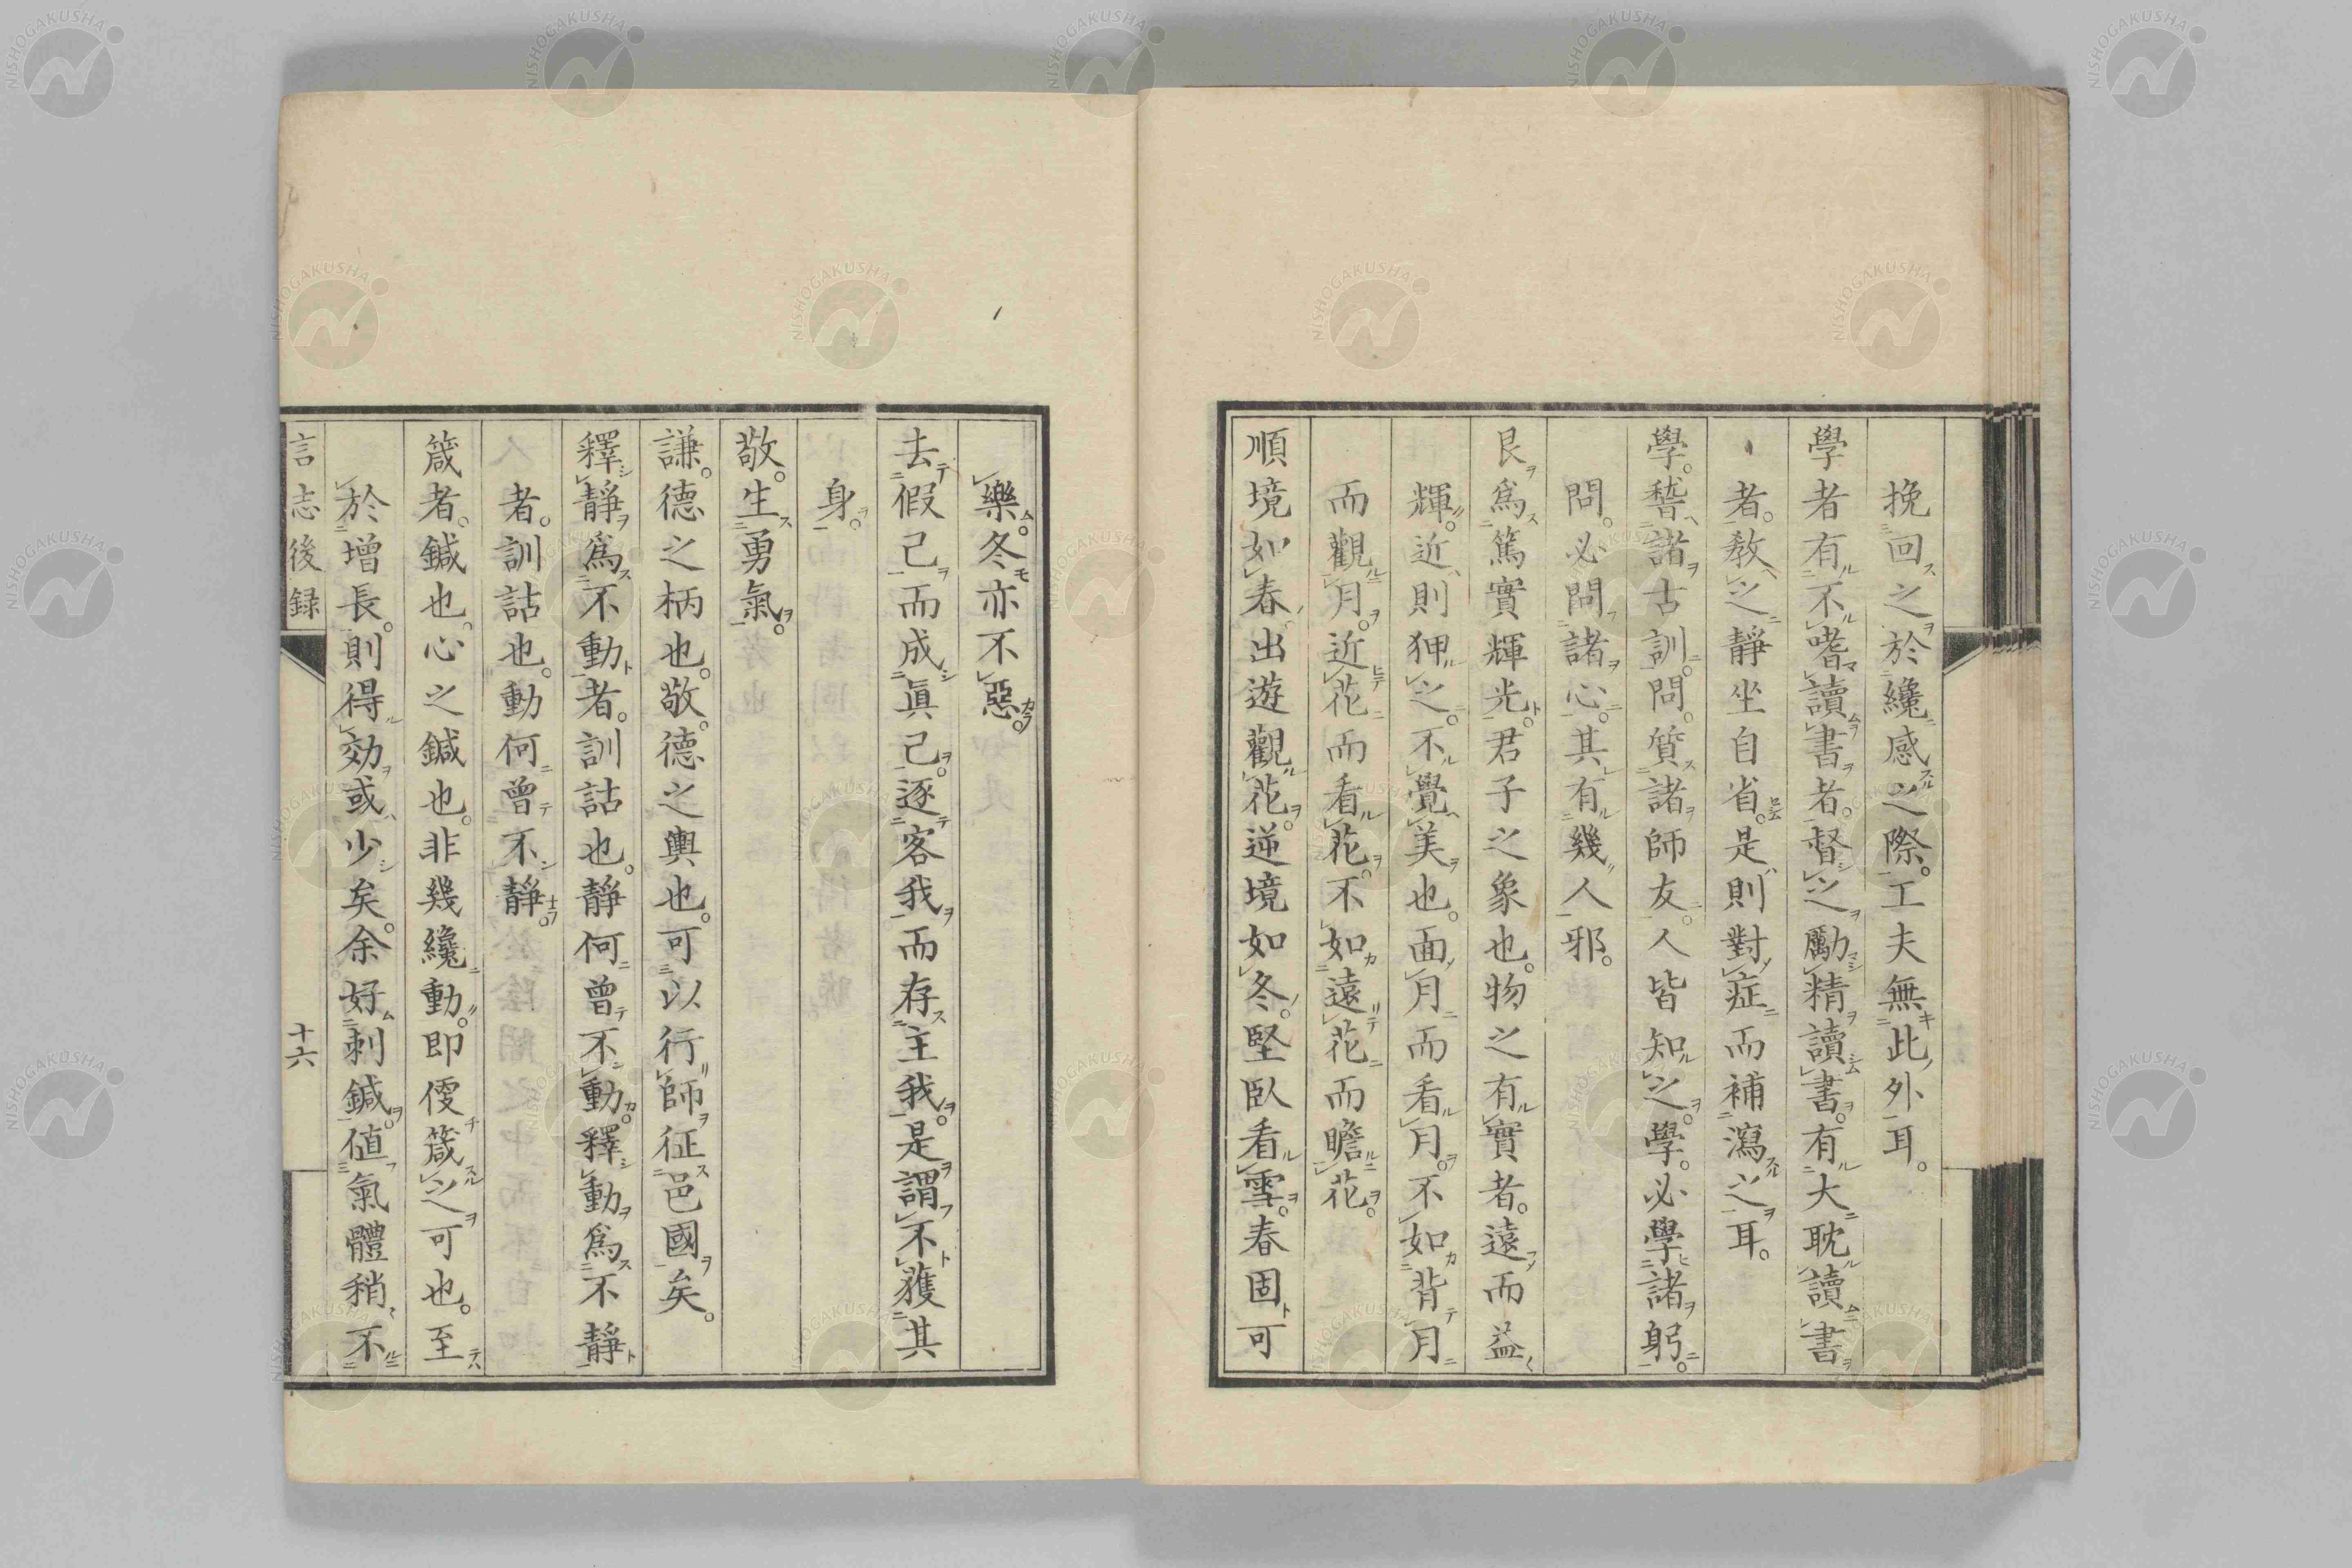 挽回之於纔感之際。工夫無此外耳。
學者有不嗜讀書者。督之勵精讀書。有大耽讀書
者。敎之靜坐自省。是則對症而補瀉之耳。
學。稽諸古訓。問。質諸師友。人皆知之。學。必學諸躬。
問。必問諸心。其有幾人邪。
艮爲篤實輝光。君子之象也。物之有實者。遠而益
輝。近則狎之。不覺美也。面月而看月。不如背月
而觀月。近花而看花。不如遠花而瞻花。
順境如春。出遊觀花。逆境如冬。堅臥看雪。春固可
樂。冬亦不惡。
去假己而成眞己。逐客我而存主我。是謂不獲其
身。
敬。生勇氣。
謙。德之柄也。敬。德之輿也。可以行師征邑國矣。
釋靜爲不動者。訓詁也。靜何曾不動。釋動爲不靜
者。訓詁也。動何曾不靜。
箴者。鍼也。心之鍼也。非幾纔動。即便箴之可也。至
於增長。則得効或少矣。余好刺鍼。値氣體稍不
言志後録
十六
NISHOGAKUSHA